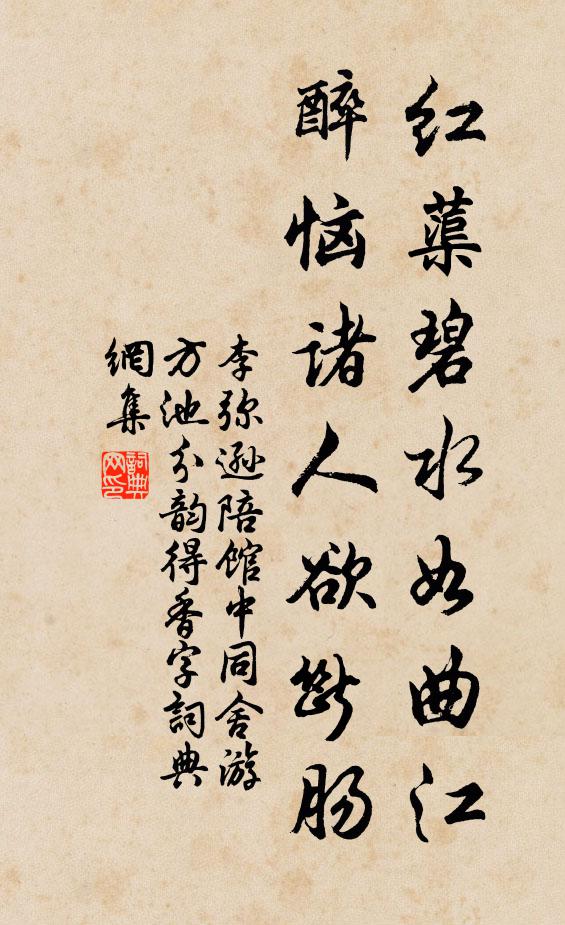 红蕖碧水如曲江
醉恼诸人欲断肠
李弥逊陪馆中同舍游
方池分韵得香字词典
網集
詞典
网印